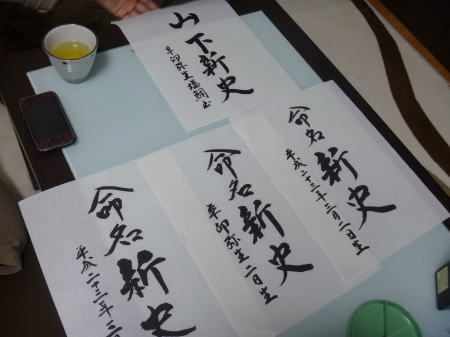 山下新史
辛卯弥生
命名 新史
平成二十三年三月二日生
命名 新史
辛卯弥生二日生
命名 新史
平成二十三年三